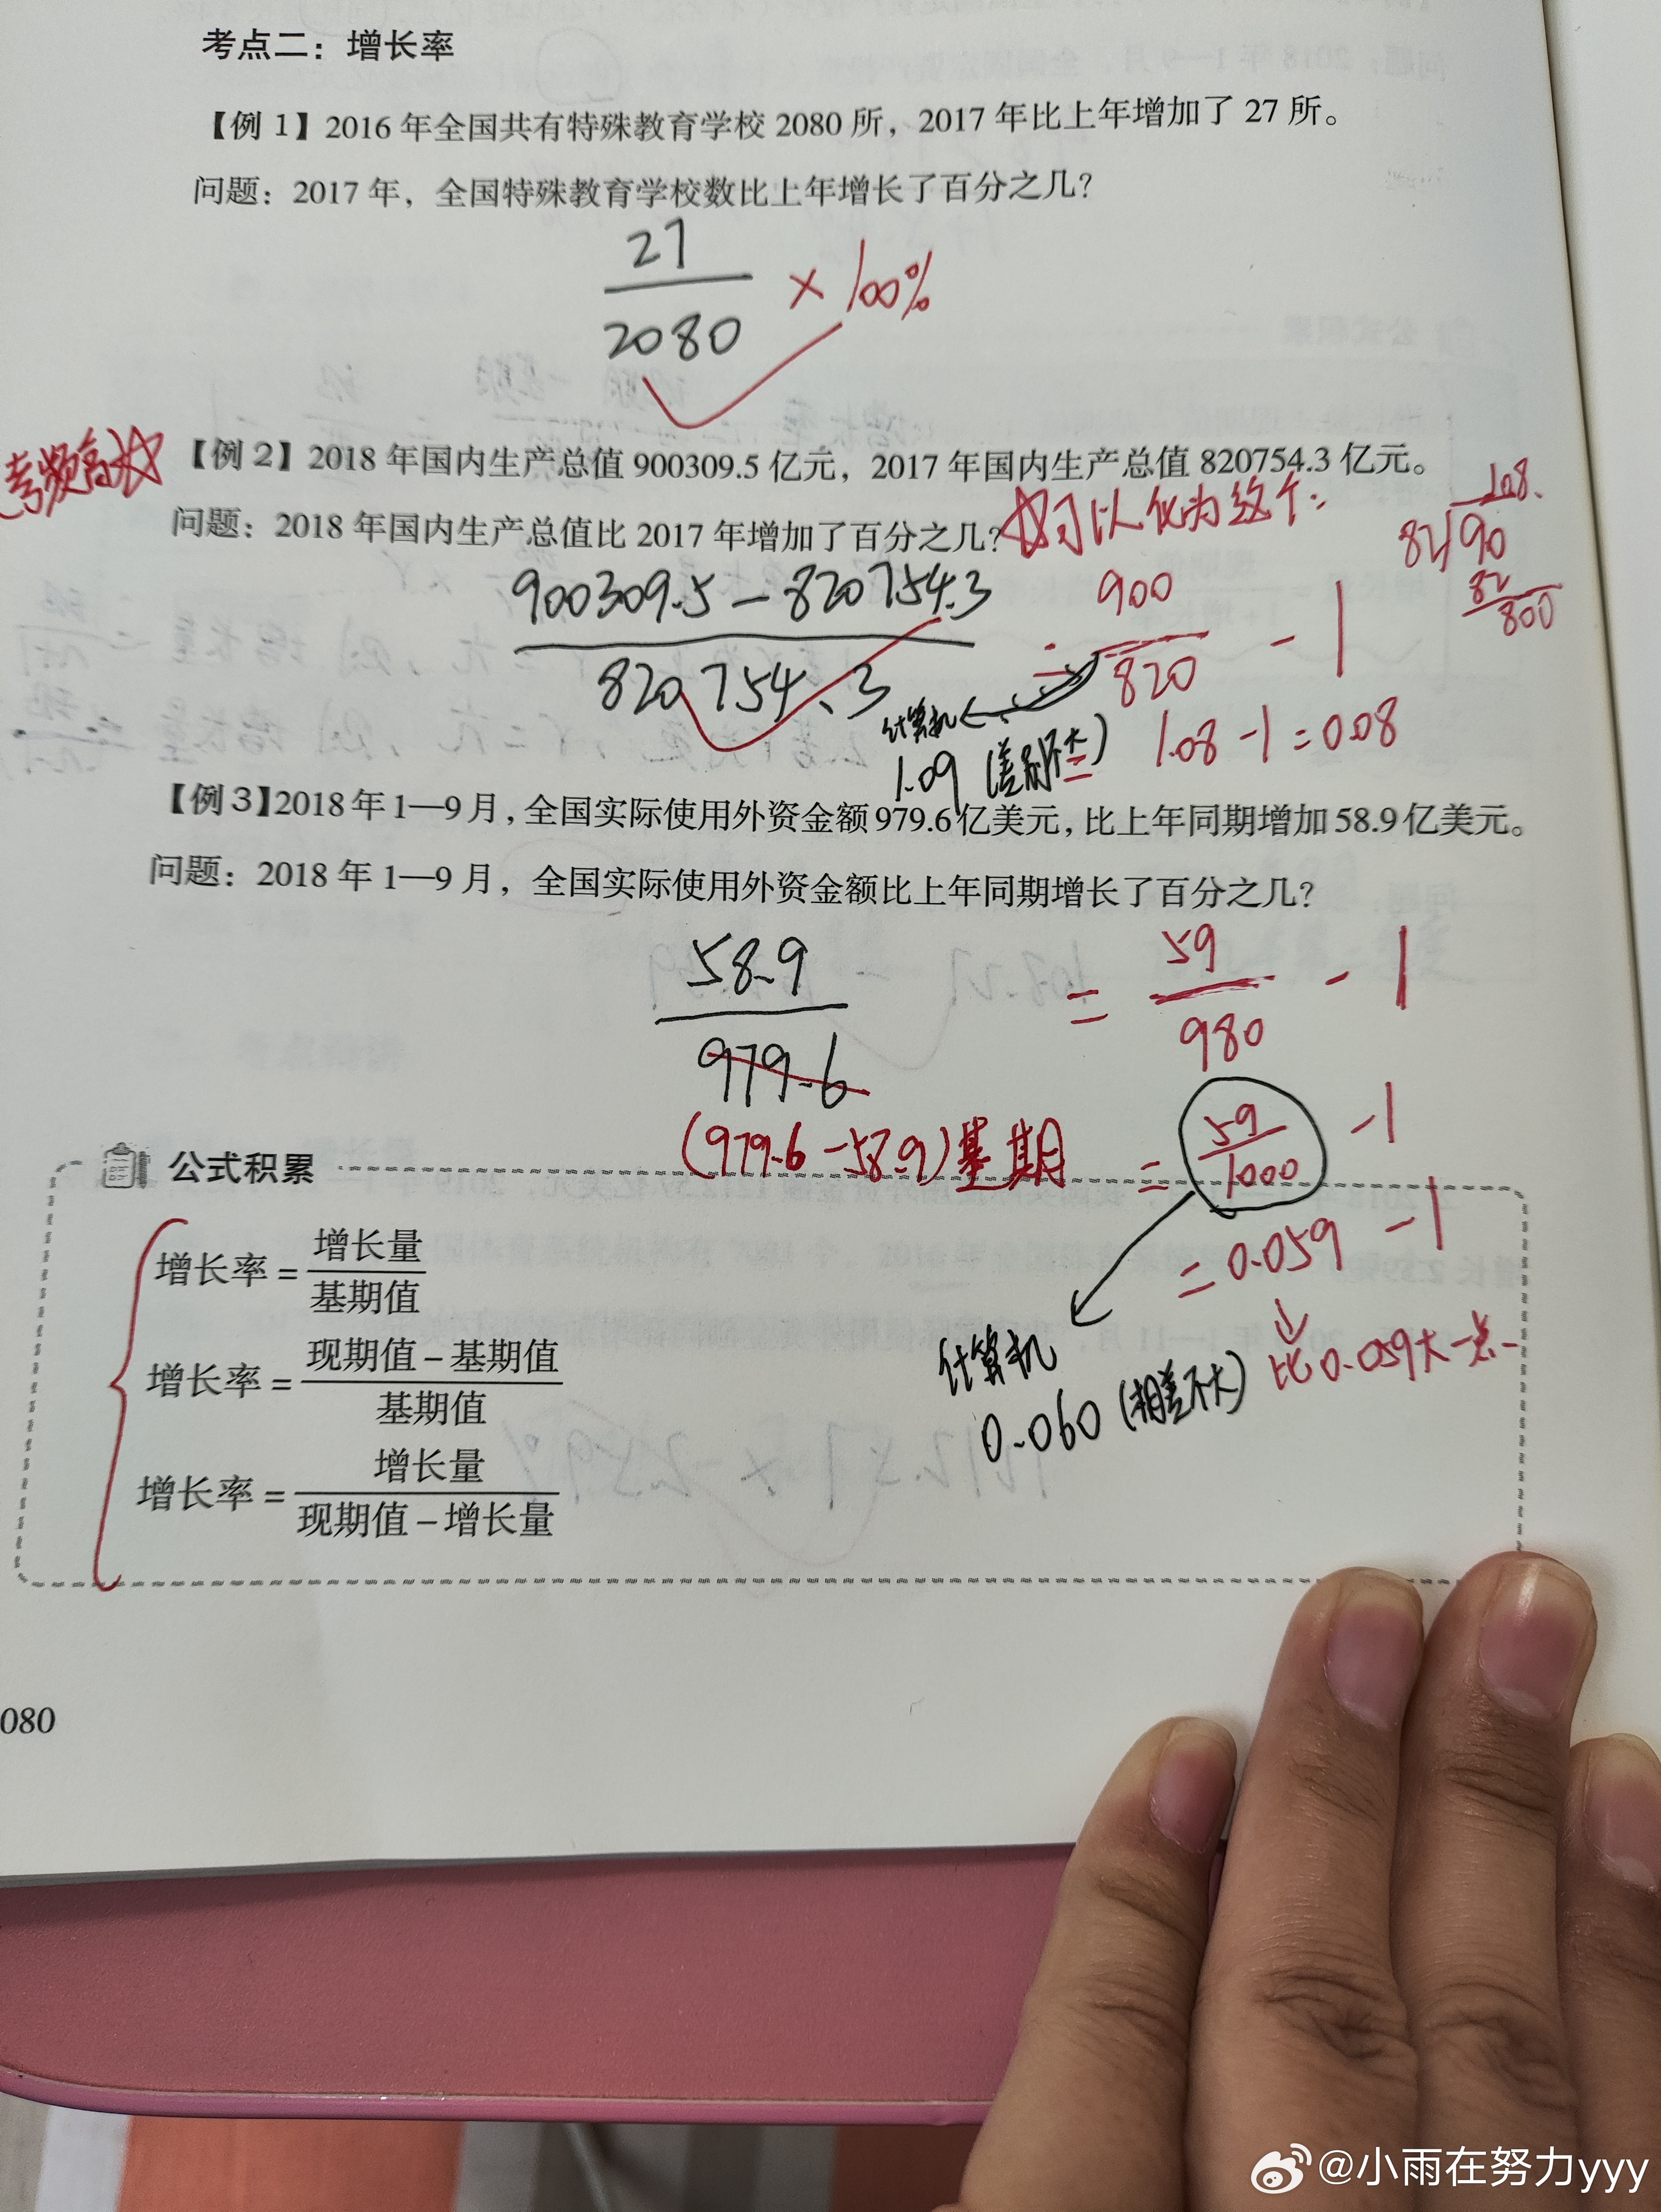 考点二：增长率
【例 1】2016 年全国共有特殊教育学校 2080 所，2017 年比上年增加了 27 所。
问题：2017 年，全国特殊教育学校数比上年增长了百分之几？
27
2080
× 100%
考频高
【例 2】2018 年国内生产总值 900309.5 亿元，2017 年国内生产总值 820754.3 亿元。
问题：2018 年国内生产总值比 2017 年增加了百分之几？
可以化为这个：
108.
82 90
82
800
900309.5 - 820754.3
820754.3
= 900
820
- 1
计算机
1.09 (差别不大)
= 1.08 - 1 = 0.08
【例 3】2018 年 1—9 月，全国实际使用外资金额 979.6 亿美元，比上年同期增加 58.9 亿美元。
问题：2018 年 1—9 月，全国实际使用外资金额比上年同期增长了百分之几？
58.9
979.6
(979.6 - 58.9) 基期
= 59
980
- 1
= 59
1000
- 1
= 0.059 - 1
比 0.059 大一点
计算机
0.060 (相差不大)
公式积累
增长率 = 增长量
基期值
增长率 = 现期值 - 基期值
基期值
增长率 = 增长量
现期值 - 增长量
080
@小雨在努力yyy